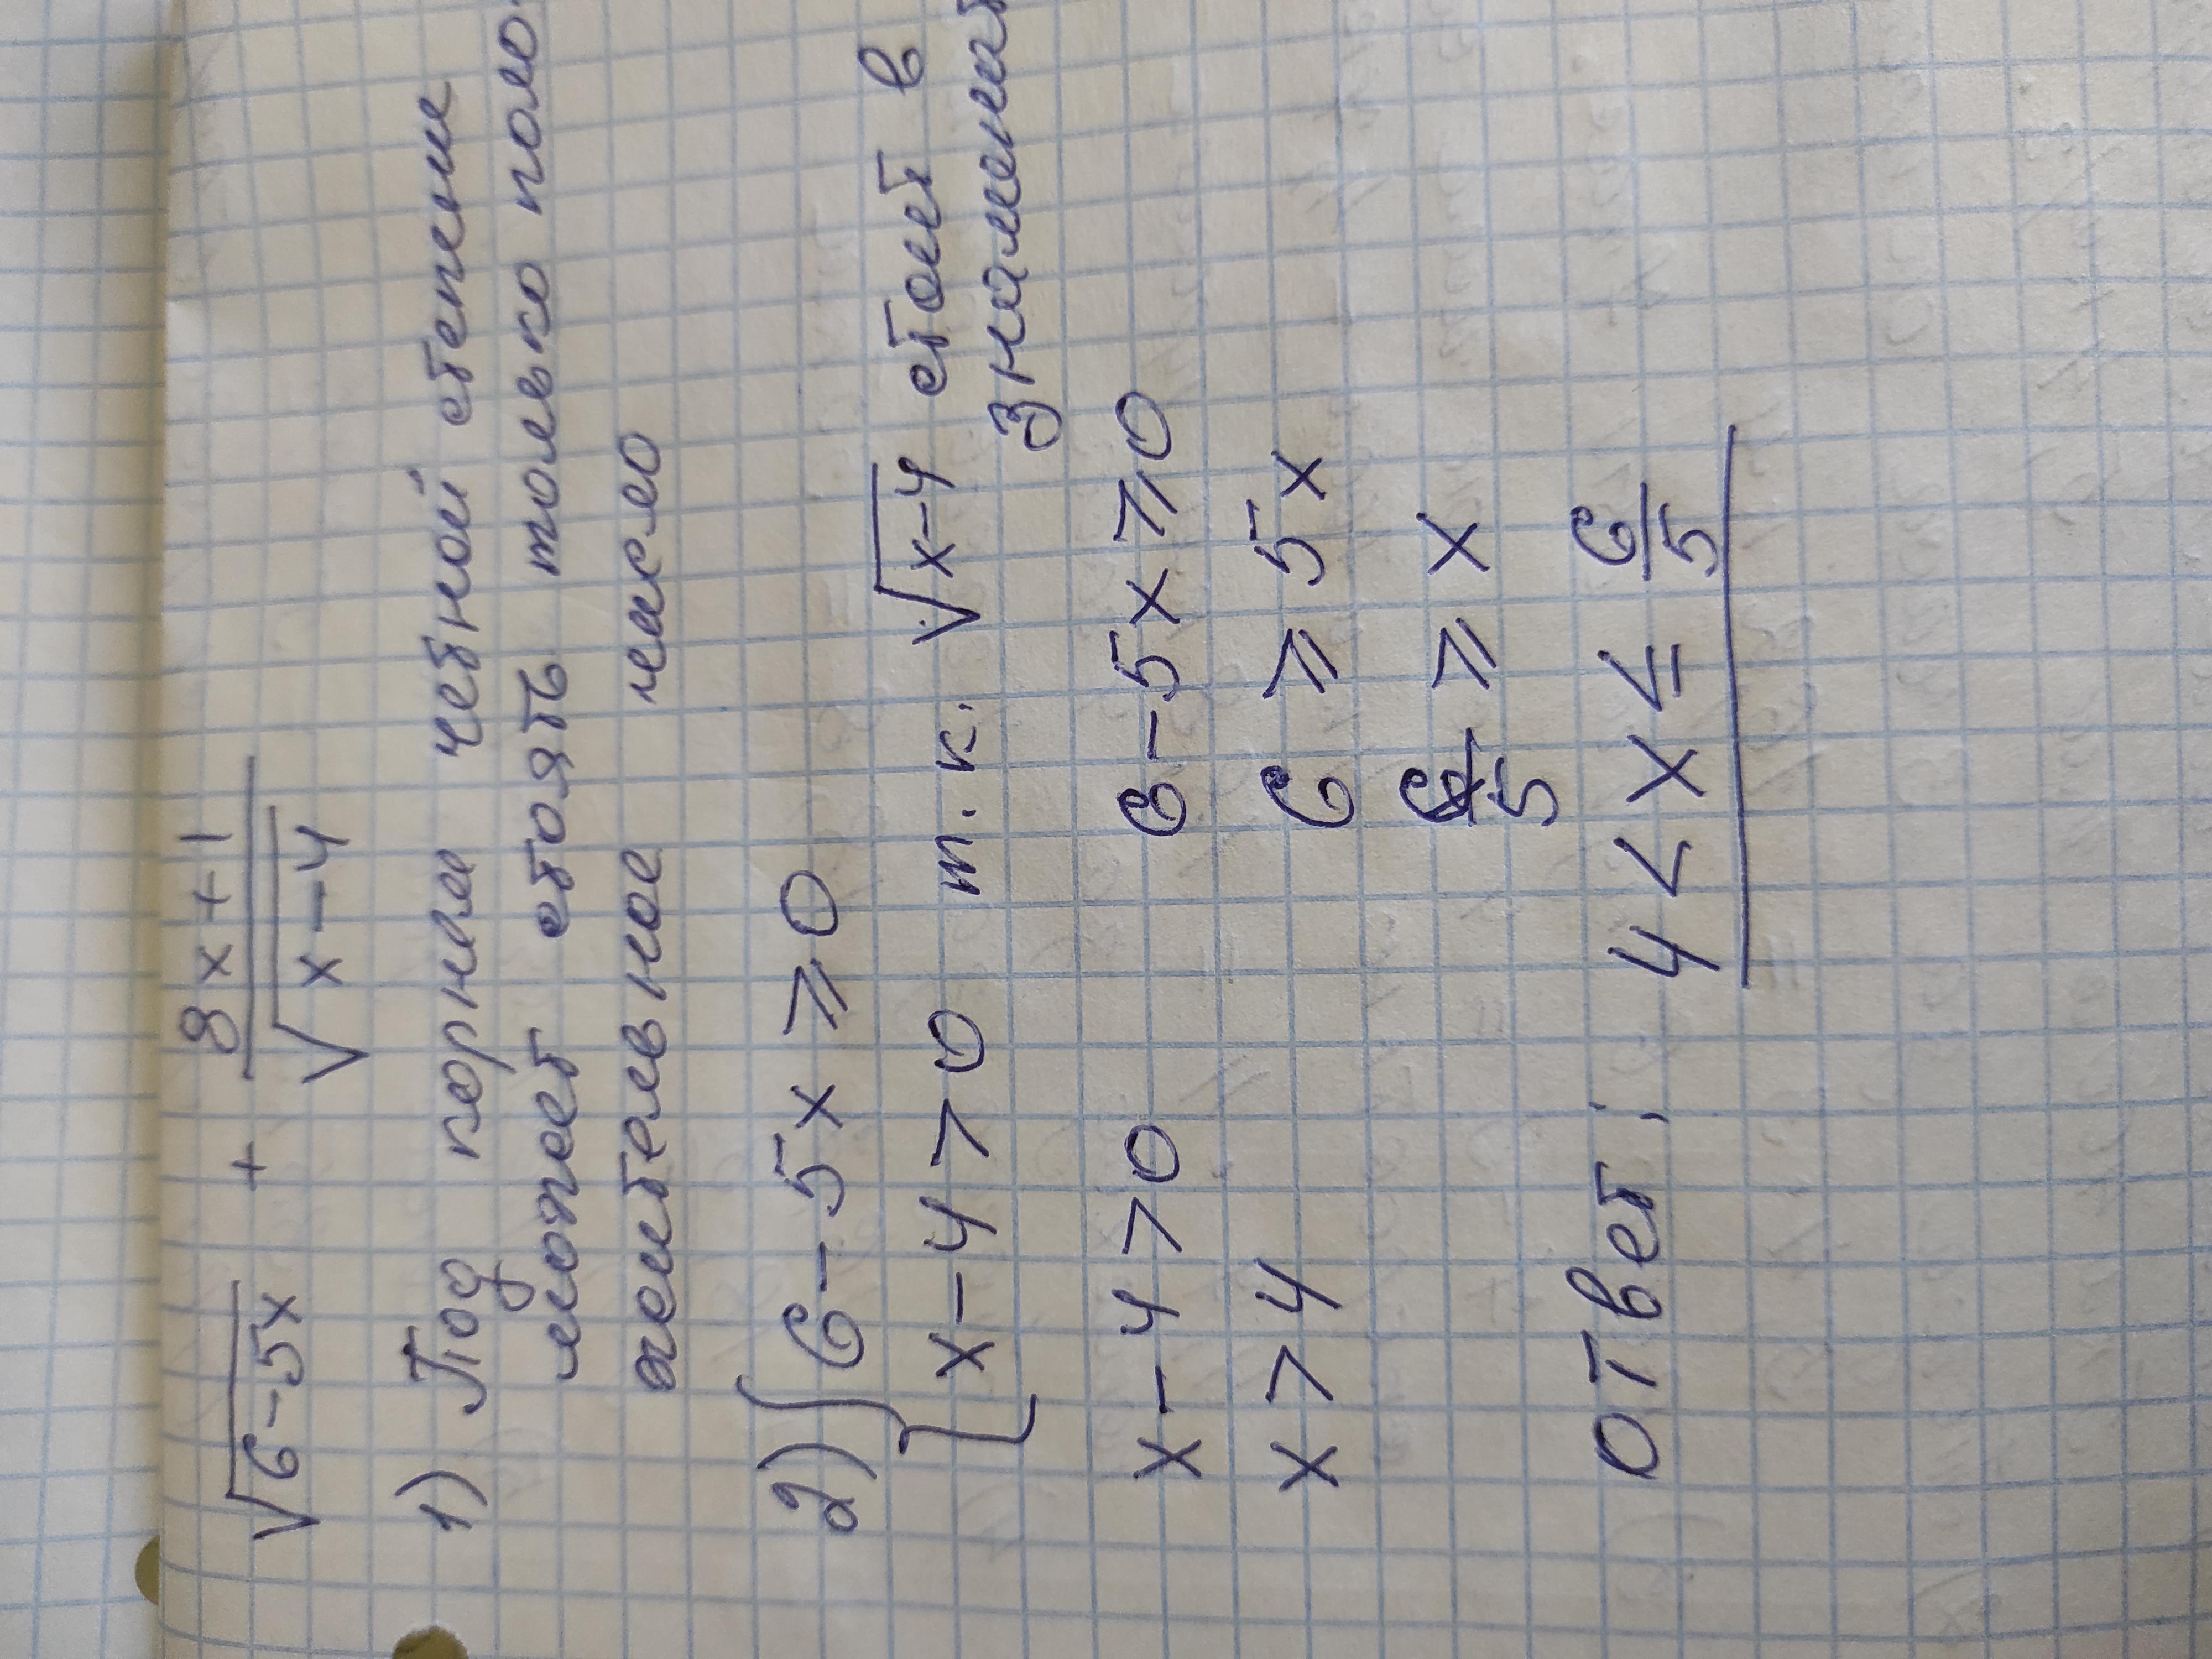 √(6-5x) + (8x+1)/√(x-4)
1) Под корнем четной степени
может стоять только поло-
жительное число
2) { 6-5x ⩾ 0
x-4 > 0 т.к. √(x-4) стоит в
знаменат
x-4 > 0 6-5x ⩾ 0
x > 4 6 ⩾ 5x
6/5 ⩾ x
Ответ: 4 < x ≤ 6/5